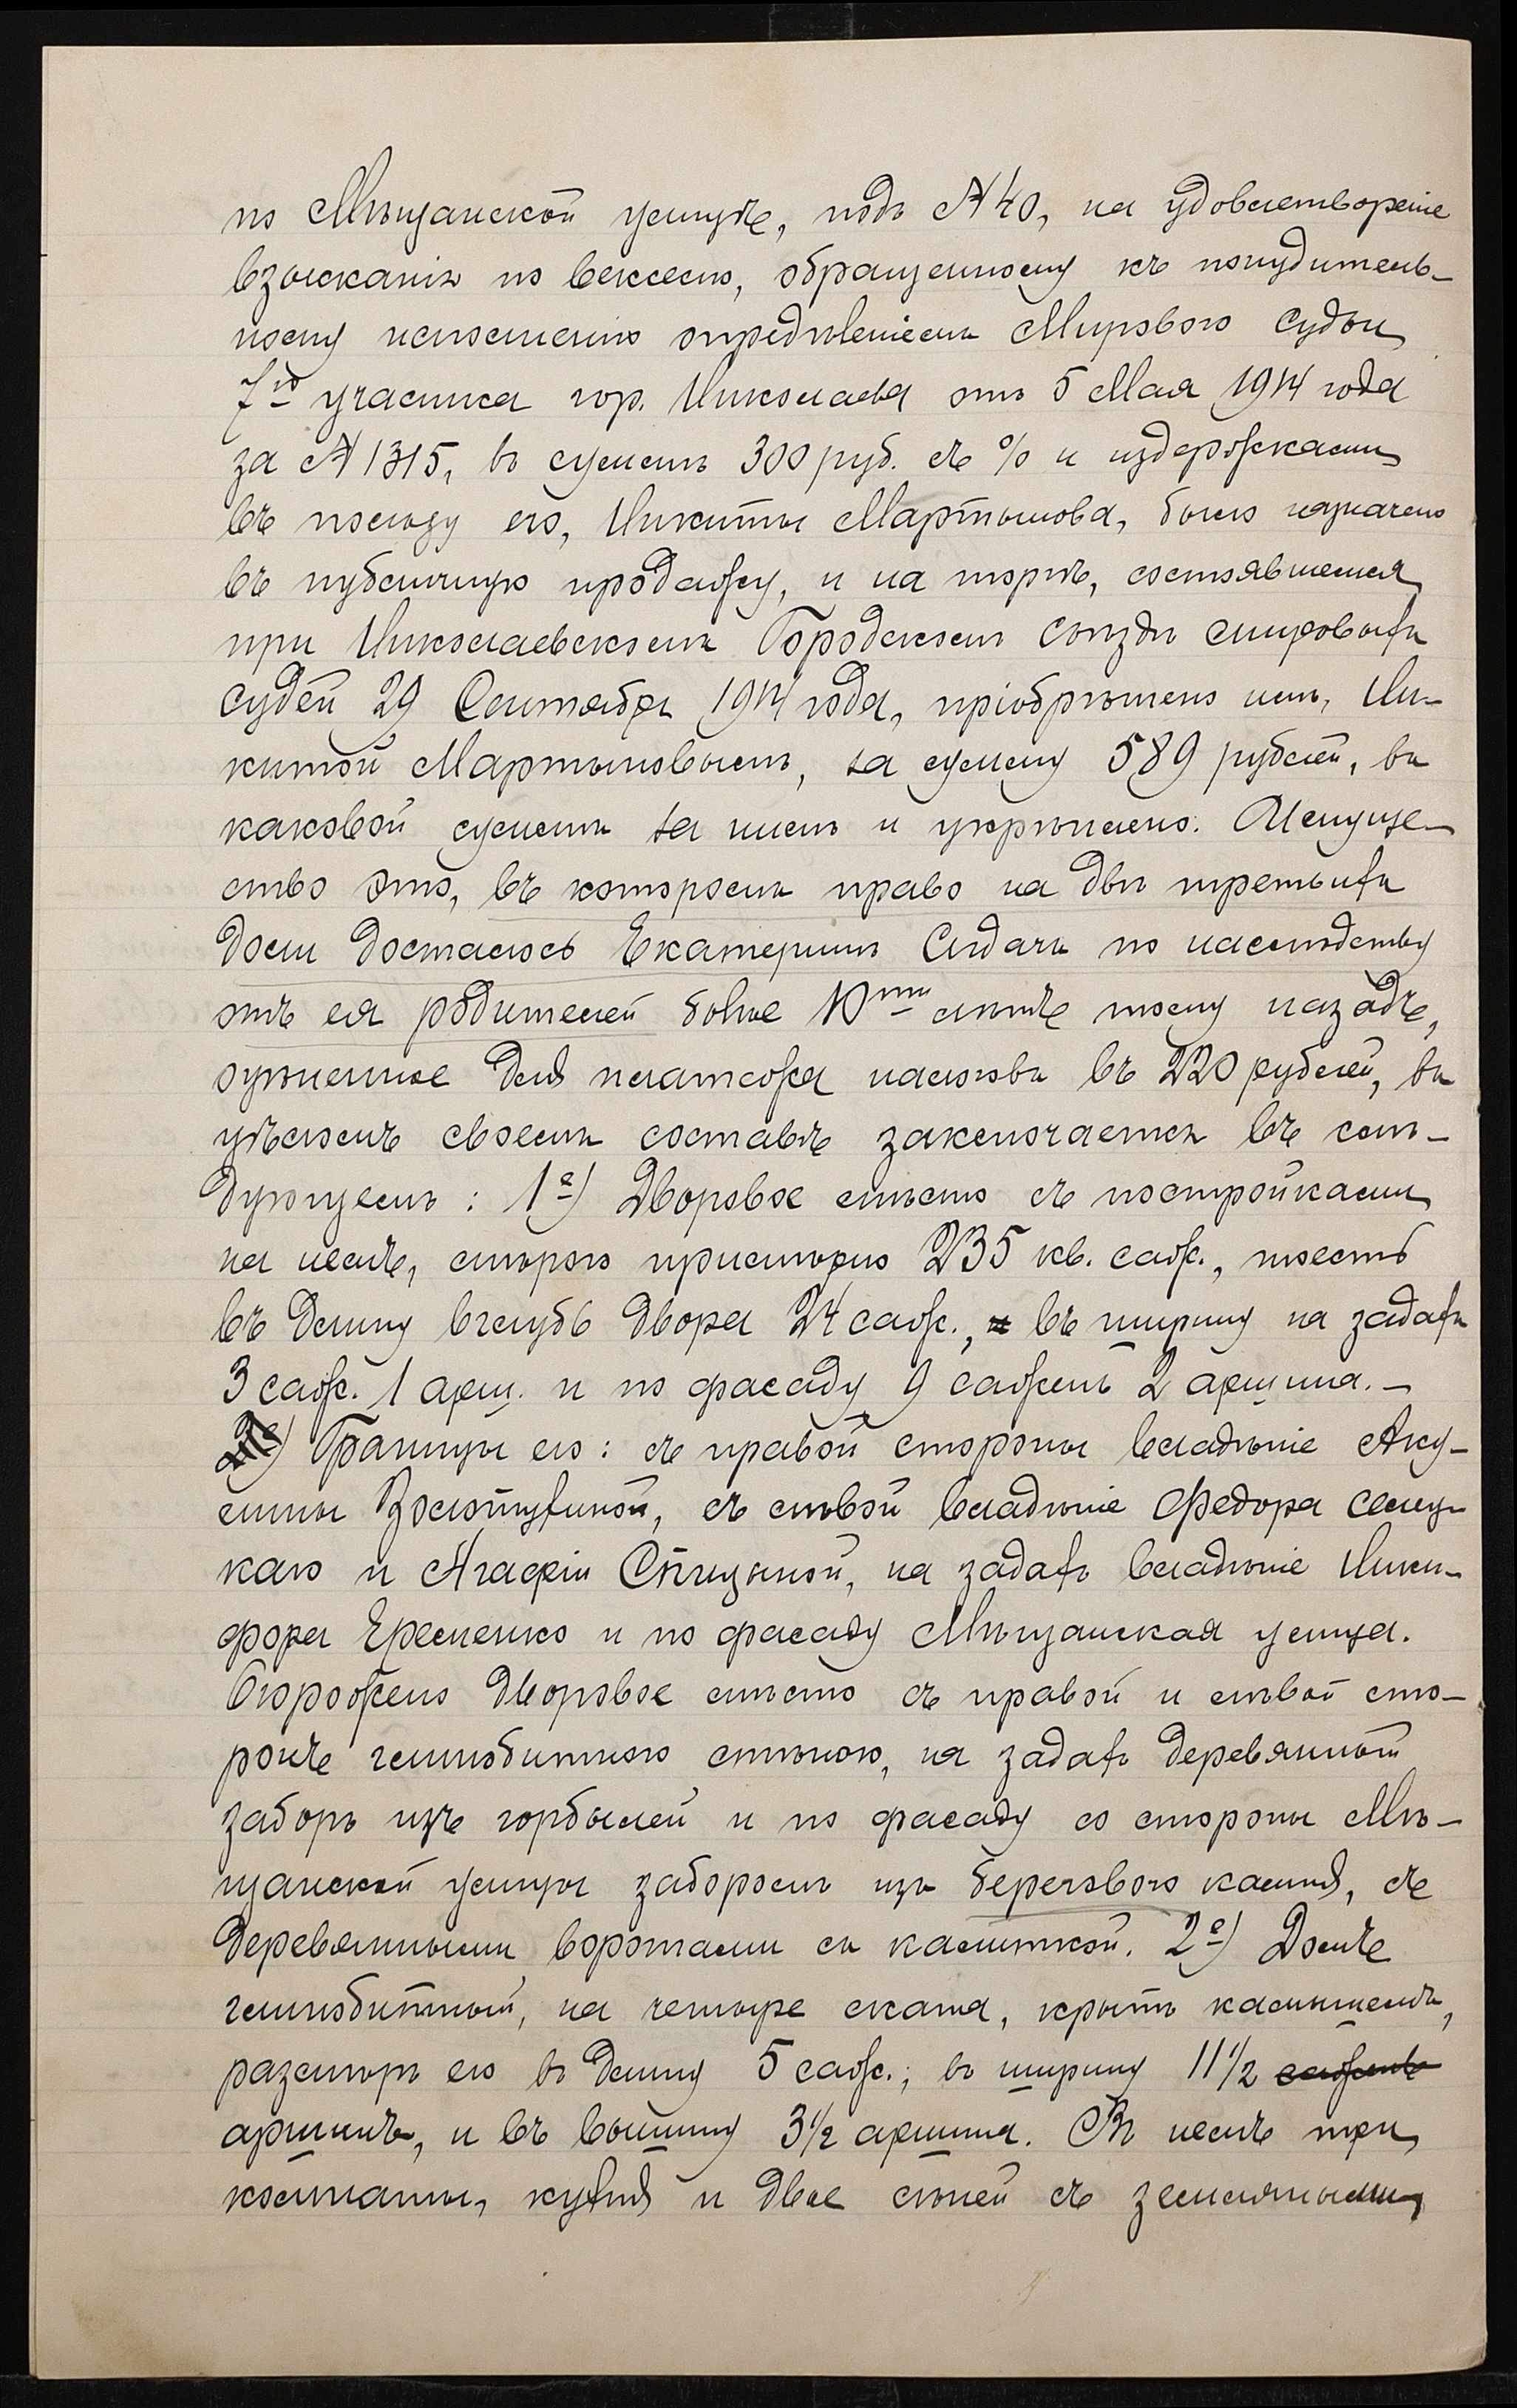 по Мѣщанской улицѣ, подъ № 40, на удовлетвореніе
взысканія по векселю, обращенному къ понудитель-
ному исполненію опредѣленіемъ Мирового Судьи
7го участка гор. Николаева отъ 5 Мая 1914 года
за № 1315, въ суммѣ 300 руб. съ % и издержками
въ пользу его, Никиты Мартынова, было назначено
въ публичную продажу, и на торгѣ, состоявшемся
при Николаевскомъ Городскомъ Съѣздѣ мировыхъ
судей 29 Сентября 1914 года, пріобрѣтено имъ, Ни-
китой Мартыновымъ, за сумму 589 рублей, въ
каковой суммѣ за нимъ и укрѣплено. Имуще-
ство это, въ которомъ право на двѣ третьихъ
доли досталось Екатеринѣ Сидачъ по наслѣдству
отъ ея родителей болѣе 10ти лѣтъ тому назадъ,
оцѣненное для платежа налоговъ въ 220 рублей, въ
цѣломъ своемъ составѣ заключается въ слѣ-
дующемъ: 1е) Дворовое мѣсто съ постройками
на немъ, мѣрою примѣрно 235 кв. саж., тоесть
въ длину вглубь двора 24 саж., въ ширину на задахъ
3 саж. 1 арш. и по фасаду 9 сажень 2 аршина. –
Границы его: съ правой стороны владѣніе Аку-
лины Золотухиной, съ лѣвой владѣніе Федора Сему-
каго и Агафіи Спицыной, на задахъ владѣніе Ники-
фора Еременко и по фасаду Мѣщанская улица.
Огорожено дворовое мѣсто съ правой и лѣвой сто-
ронъ глинобитною стѣною, на задахъ деревянный
заборъ изъ горбылей и по фасаду со стороны Мѣ-
щанской улицы заборомъ изъ берегового камня, съ
деревянными воротами съ калиткой. 2е) Домъ
глинобитный, на четыре ската, крытъ камышемъ,
размѣръ его въ длину 5 саж.; въ ширину 11½ сажень
аршинъ, и въ вышину 3½ аршина. Въ немъ три
комнаты, кухня и двое сѣней съ земляными